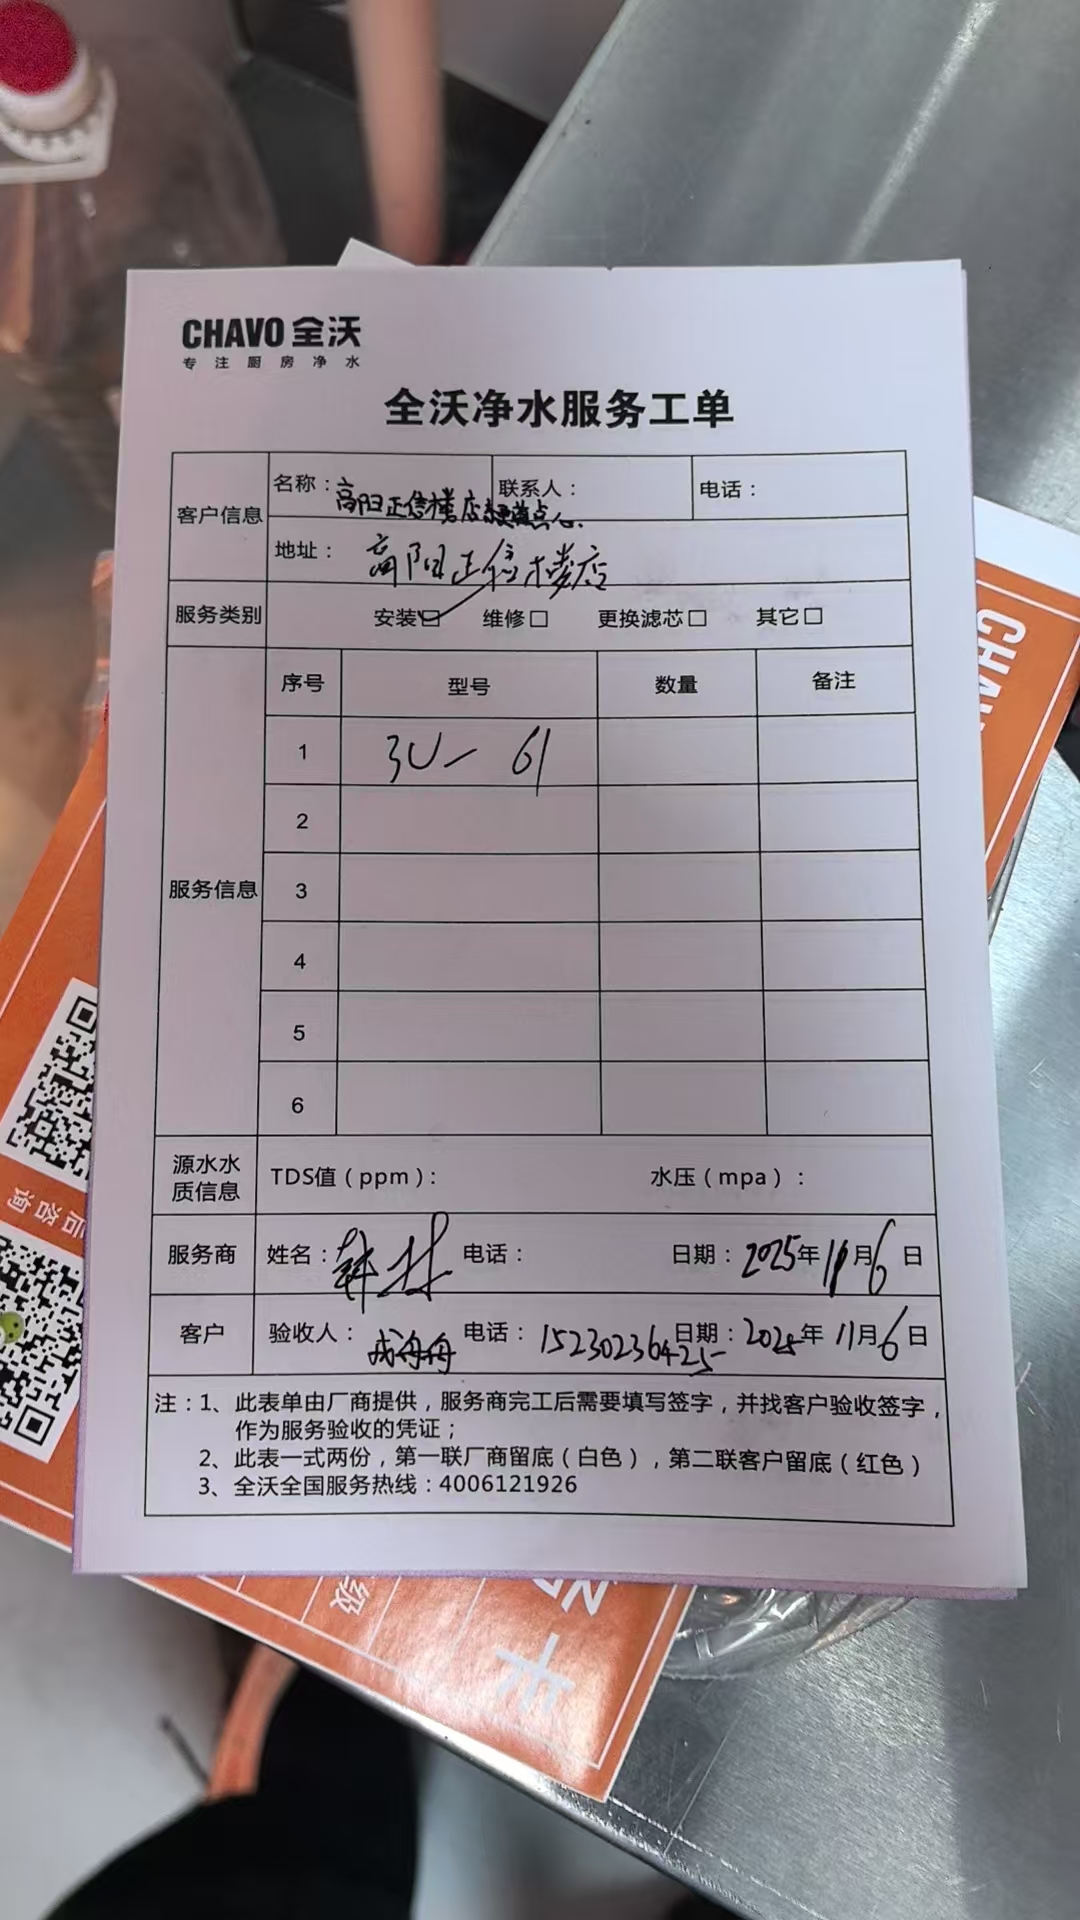 CHAVO 全沃
专注厨房净水
全沃净水服务工单
客户信息
名称：高阳正信楼店 点心
联系人：
电话：
地址：高阳正信楼店
服务类别
安装☑ 维修□ 更换滤芯□ 其它□
服务信息
序号 型号 数量 备注
1 3U-61
2
3
4
5
6
源水水质信息
TDS值（ppm）： 水压（mpa）：
服务商 姓名：韩 电话： 日期：2025年11月6日
客户 验收人：成舟舟 电话：15230236425 日期：2025年11月6日
注：1、此表单由厂商提供，服务商完工后需要填写签字，并找客户验收签字，
作为服务验收的凭证；
2、此表一式两份，第一联厂商留底（白色），第二联客户留底（红色）
3、全沃全国服务热线：4006121926
后咨询
级
卡